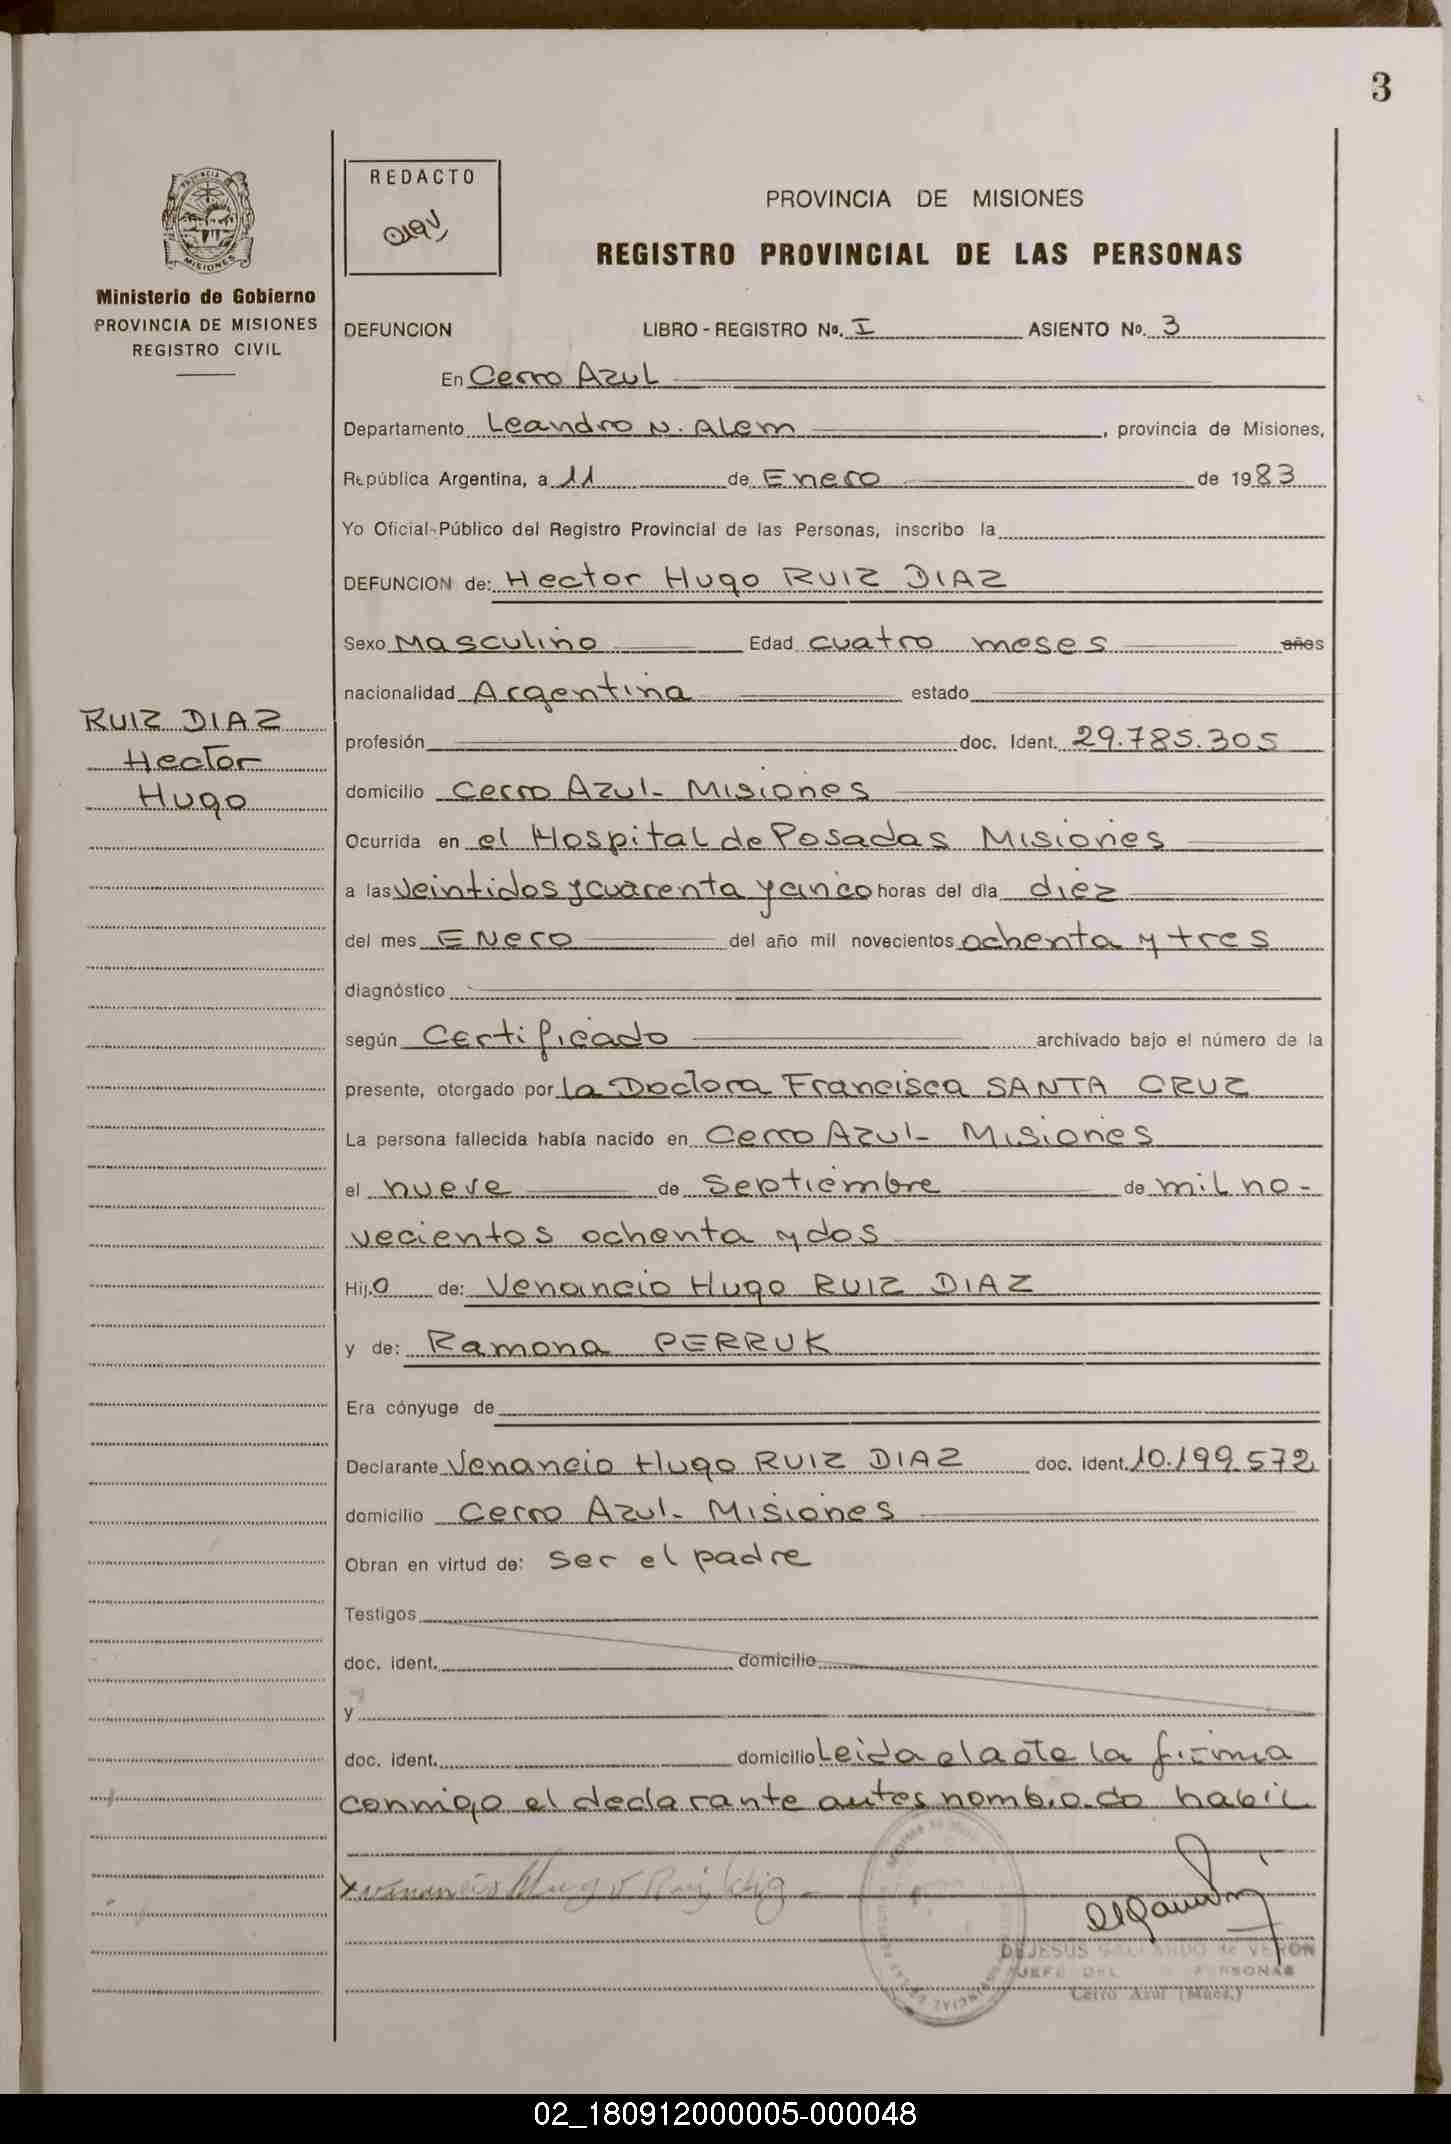 3
PROVINCIA
MISIONES
Ministerio de Gobierno
PROVINCIA DE MISIONES
REGISTRO CIVIL
REDACTO
PROVINCIA DE MISIONES
REGISTRO PROVINCIAL DE LAS PERSONAS
DEFUNCION LIBRO - REGISTRO No. I ASIENTO No. 3
En Cerro Azul
Departamento Leandro N. Alem, provincia de Misiones,
República Argentina, a 11 de Enero de 1983
Yo Oficial Público del Registro Provincial de las Personas, inscribo la
DEFUNCION de: Hector Hugo RUIZ DIAZ
Sexo Masculino Edad cuatro meses años
nacionalidad Argentina estado
RUIZ DIAZ
Hector
Hugo
profesión doc. Ident. 29.785.305
domicilio Cerro Azul - Misiones
Ocurrida en el Hospital de Posadas Misiones
a las veintidos y cuarenta y cinco horas del día diez
del mes Enero del año mil novecientos ochenta y tres
diagnóstico
según Certificado archivado bajo el número de la
presente, otorgado por la Doctora Francisca SANTA CRUZ
La persona fallecida había nacido en Cerro Azul - Misiones
el nueve de Septiembre de mil no-
vecientos ochenta y dos
Hijo de: Venancio Hugo RUIZ DIAZ
y de: Ramona PERRUK
Era cónyuge de
Declarante Venancio Hugo RUIZ DIAZ doc. ident. 10.199.572
domicilio Cerro Azul - Misiones
Obran en virtud de: ser el padre
Testigos
doc. ident. domicilio
y
doc. ident. domicilio Leida el acta la firma
conmigo el declarante antes nombrado habil
DEJESUS GALLARDO de VERON
JEFE DEL PERSONAS
Cerro Azul (Mnes.)
02_180912000005-000048